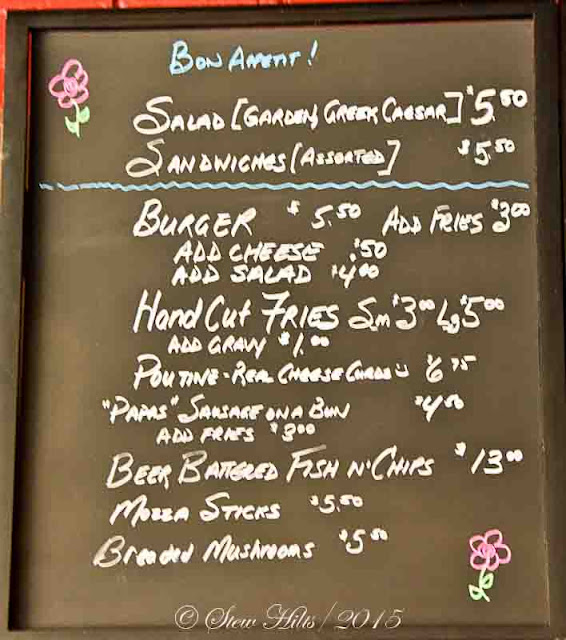 Bon Apetit!
Salad [Garden, Greek Caesar] $5.50
Sandwiches [Assorted] $5.50
Burger $5.50 Add Fries $3.00
Add Cheese .50
Add Salad $4.00
Hand Cut Fries Sm $3.00 Lg $5.00
Add Gravy $1.00
Poutine - Real Cheese Curds $6.75
"Papas" Sausage on a Bun $4.50
Add Fries $3.00
Beer Battered Fish n' Chips $13.00
Mozza Sticks $5.50
Breaded Mushrooms $5.50
© Stew Hilts/2015